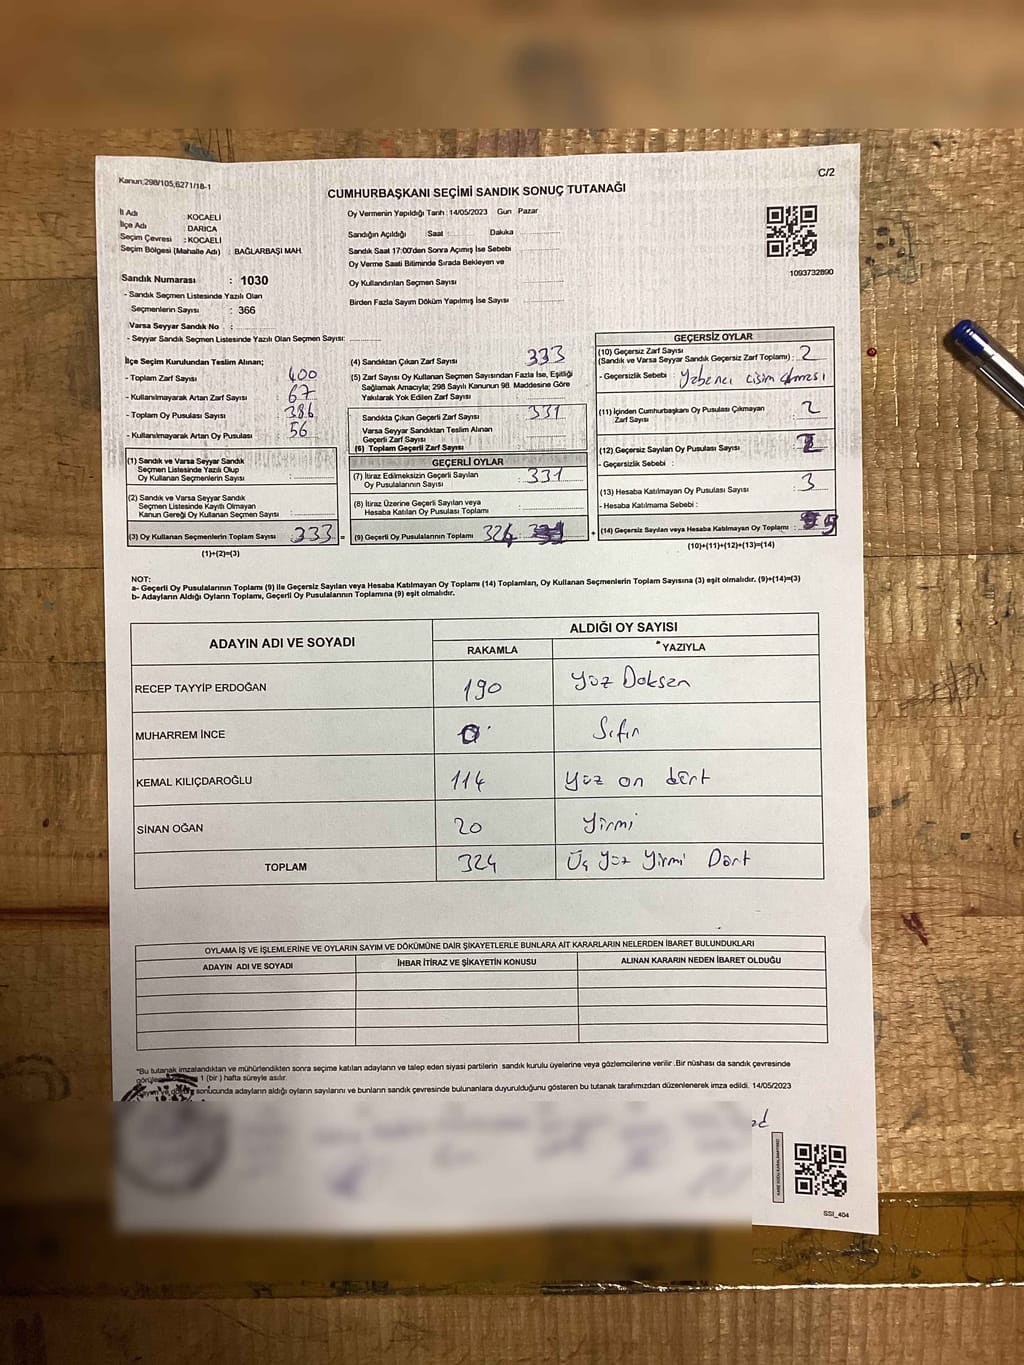 Kanun:298/105,6271/18-1
C/2
CUMHURBAŞKANI SEÇİMİ SANDIK SONUÇ TUTANAĞI
İl Adı : KOCAELİ
İlçe Adı : DARICA
Seçim Çevresi : KOCAELİ
Seçim Bölgesi (Mahalle Adı) : BAĞLARBAŞI MAH.
Sandık Numarası : 1030
- Sandık Seçmen Listesinde Yazılı Olan
Seçmenlerin Sayısı : 366
Varsa Seyyar Sandık No :
- Seyyar Sandık Seçmen Listesinde Yazılı Olan Seçmen Sayısı:
Oy Vermenin Yapıldığı Tarih : 14/05/2023 Gün Pazar
Sandığın Açıldığı Saat : Dakika
Sandık Saat 17:00'den Sonra Açımış İse Sebebi
Oy Verme Saati Bitiminde Sırada Bekleyen ve
Oy Kullandırılan Seçmen Sayısı
Birden Fazla Sayım Döküm Yapılmış İse Sayısı
1093732890
İlçe Seçim Kurulundan Teslim Alınan;
- Toplam Zarf Sayısı : 400
- Kullanılmayarak Artan Zarf Sayısı : 67
- Toplam Oy Pusulası Sayısı : 386
- Kullanılmayarak Artan Oy Pusulası : 56
(1) Sandık ve Varsa Seyyar Sandık
Seçmen Listesinde Yazılı Olup
Oy Kullanan Seçmenlerin Sayısı :
(2) Sandık ve Varsa Seyyar Sandık
Seçmen Listesinde Kayıtlı Olmayan
Kanun Gereği Oy Kullanan Seçmen Sayısı :
(3) Oy Kullanan Seçmenlerin Toplam Sayısı : 333 =
(1)+(2)=(3)
(4) Sandıktan Çıkan Zarf Sayısı 333
(5) Zarf Sayısı Oy Kullanan Seçmen Sayısından Fazla İse, Eşitliği
Sağlamak Amacıyla; 298 Sayılı Kanunun 98. Maddesine Göre
Yakılarak Yok Edilen Zarf Sayısı
Sandıkta Çıkan Geçerli Zarf Sayısı : 331
Varsa Seyyar Sandıktan Teslim Alınan
Geçerli Zarf Sayısı
(6) Toplam Geçerli Zarf Sayısı
GEÇERLİ OYLAR
(7) İtiraz Edilmeksizin Geçerli Sayılan
Oy Pusulalarının Sayısı : 331
(8) İtiraz Üzerine Geçerli Sayılan veya
Hesaba Katılan Oy Pusulası Toplamı :
(9) Geçerli Oy Pusulalarının Toplamı 324 +
GEÇERSİZ OYLAR
(10) Geçersiz Zarf Sayısı
(Sandık ve Varsa Seyyar Sandık Geçersiz Zarf Toplamı) : 2
- Geçersizlik Sebebi : Yabancı cisim
(11) İçinden Cumhurbaşkanı Oy Pusulası Çıkmayan
Zarf Sayısı : 2
(12) Geçersiz Sayılan Oy Pusulası Sayısı : 2
- Geçersizlik Sebebi :
(13) Hesaba Katılmayan Oy Pusulası Sayısı : 3
- Hesaba Katılmama Sebebi :
(14) Geçersiz Sayılan veya Hesaba Katılmayan Oy Toplamı : 9
(10)+(11)+(12)+(13)=(14)
NOT:
a- Geçerli Oy Pusulalarının Toplamı (9) ile Geçersiz Sayılan veya Hesaba Katılmayan Oy Toplamı (14) Toplamları, Oy Kullanan Seçmenlerin Toplam Sayısına (3) eşit olmalıdır. (9)+(14)=(3)
b- Adayların Aldığı Oyların Toplamı, Geçerli Oy Pusulalarının Toplamına (9) eşit olmalıdır.
ADAYIN ADI VE SOYADI
ALDIĞI OY SAYISI
RAKAMLA YAZIYLA
RECEP TAYYİP ERDOĞAN 190 Yüz Doksan
MUHARREM İNCE 0 Sıfır
KEMAL KILIÇDAROĞLU 114 Yüz on dört
SİNAN OĞAN 20 Yirmi
TOPLAM 324 Üç Yüz Yirmi Dört
OYLAMA İŞ VE İŞLEMLERİNE VE OYLARIN SAYIM VE DÖKÜMÜNE DAİR ŞİKAYETLERLE BUNLARA AİT KARARLARIN NELERDEN İBARET BULUNDUKLARI
ADAYIN ADI VE SOYADI İHBAR İTİRAZ VE ŞİKAYETİN KONUSU ALINAN KARARIN NEDEN İBARET OLDUĞU
"Bu tutanak imzalandıktan ve mühürlendikten sonra seçime katılan adayların ve talep eden siyasi partilerin sandık kurulu üyelerine veya gözlemcilerine verilir .Bir nüshası da sandık çevresinde
1 (bir ) hafta süreyle asılır.
sonucunda adayların aldığı oyların sayılarını ve bunların sandık çevresinde bulunanlara duyurulduğunu gösteren bu tutanak tarafımızdan düzenlenerek imza edildi. 14/05/2023
SSI_404